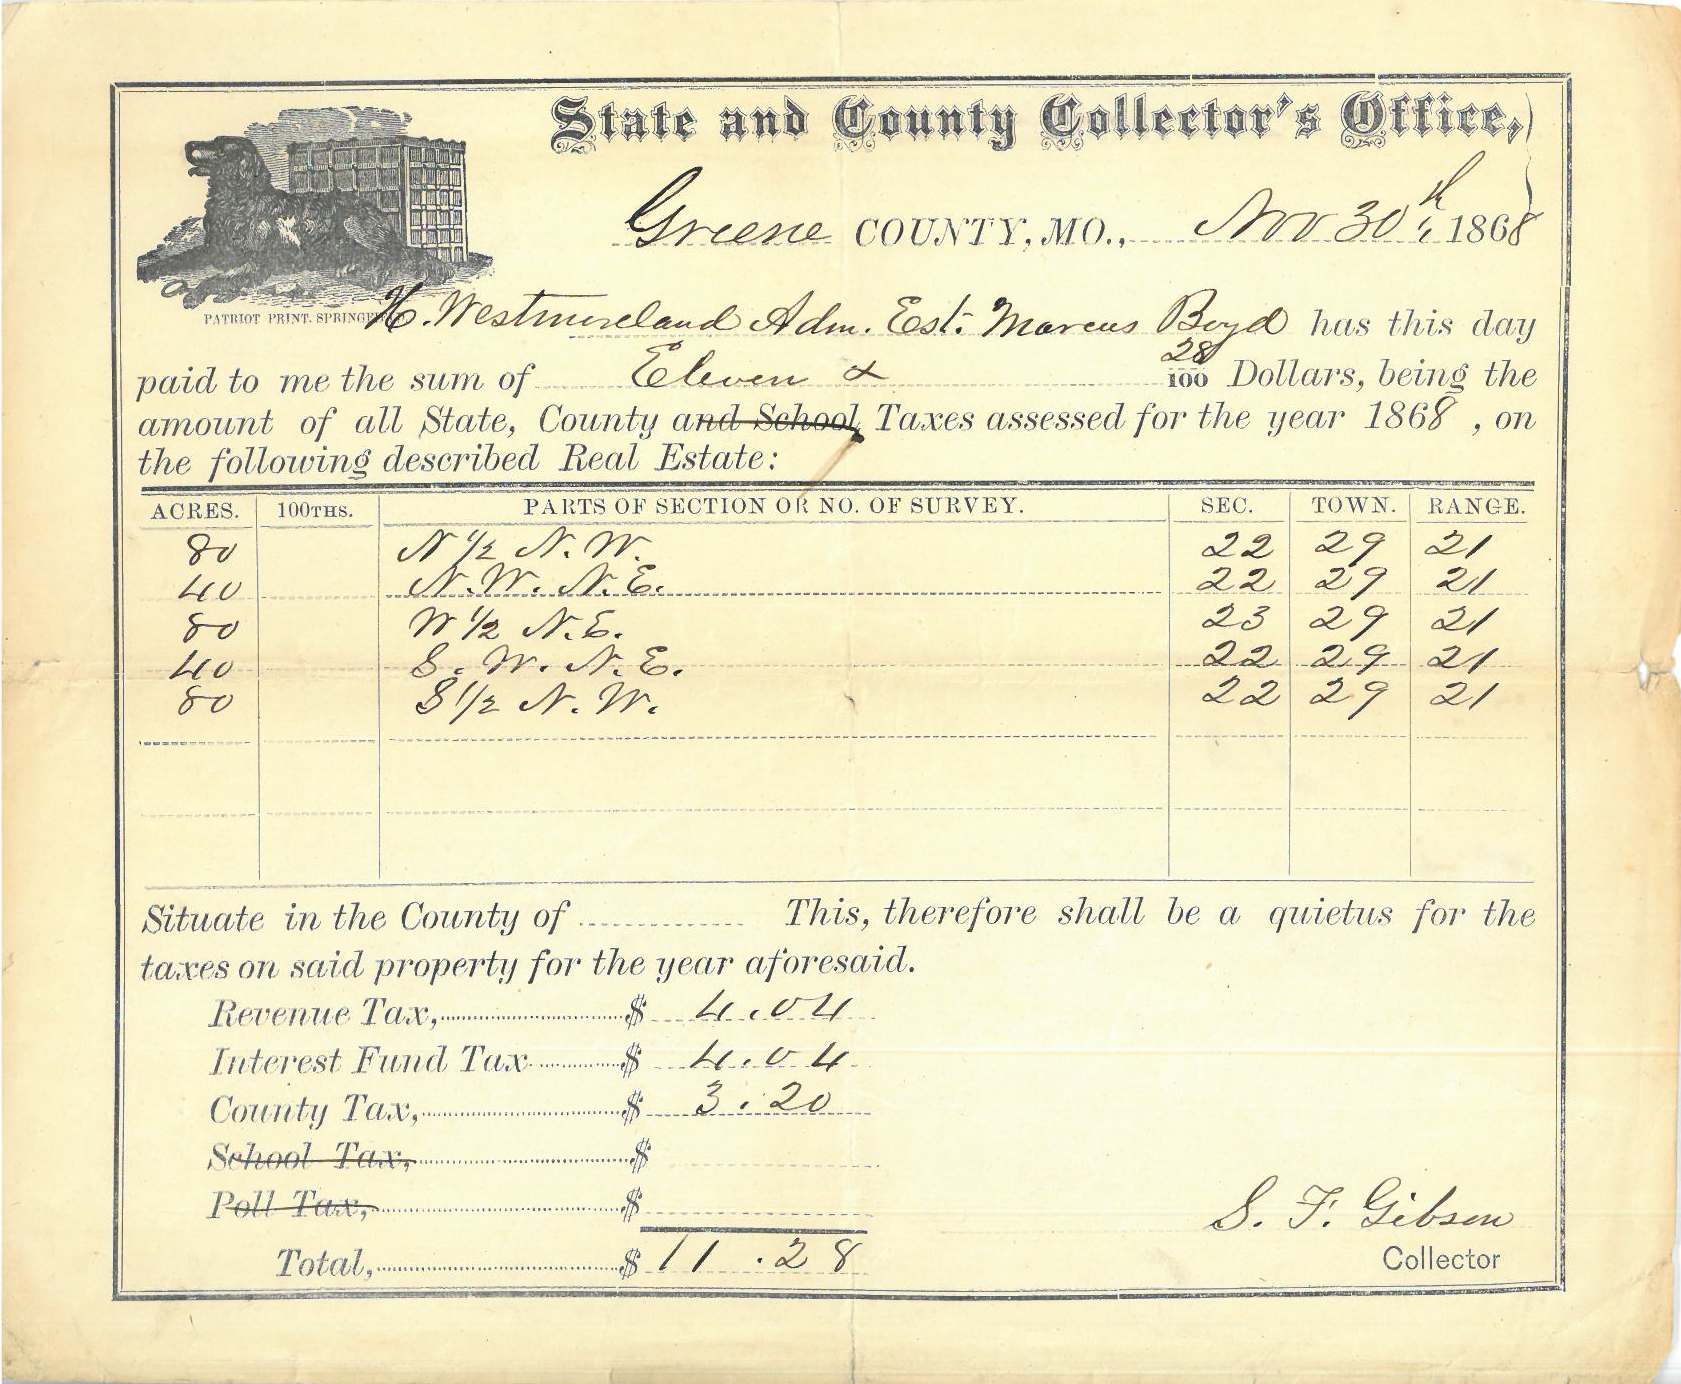 State and County Collector's Office,
Greene COUNTY, MO., Nov 30th, 1868
PATRIOT PRINT. SPRINGF
H. Westmoreland Adm. Est. Marcus Boyd has this day
paid to me the sum of Eleven & 28/100 Dollars, being the
amount of all State, County and School Taxes assessed for the year 1868, on
the following described Real Estate:
ACRES. 100THS. PARTS OF SECTION OR NO. OF SURVEY. SEC. TOWN. RANGE.
80 N 1/2 N. W. 22 29 21
40 N. W. N. E. 22 29 21
80 W 1/2 N. E. 23 29 21
40 S. W. N. E. 22 29 21
80 S 1/2 N. W. 22 29 21
Situate in the County of This, therefore shall be a quietus for the
taxes on said property for the year aforesaid.
Revenue Tax, $ 4.04
Interest Fund Tax $ 4.04
County Tax, $ 3.20
School Tax, $
Poll Tax, $
Total, $ 11.28
S. F. Gibson
Collector